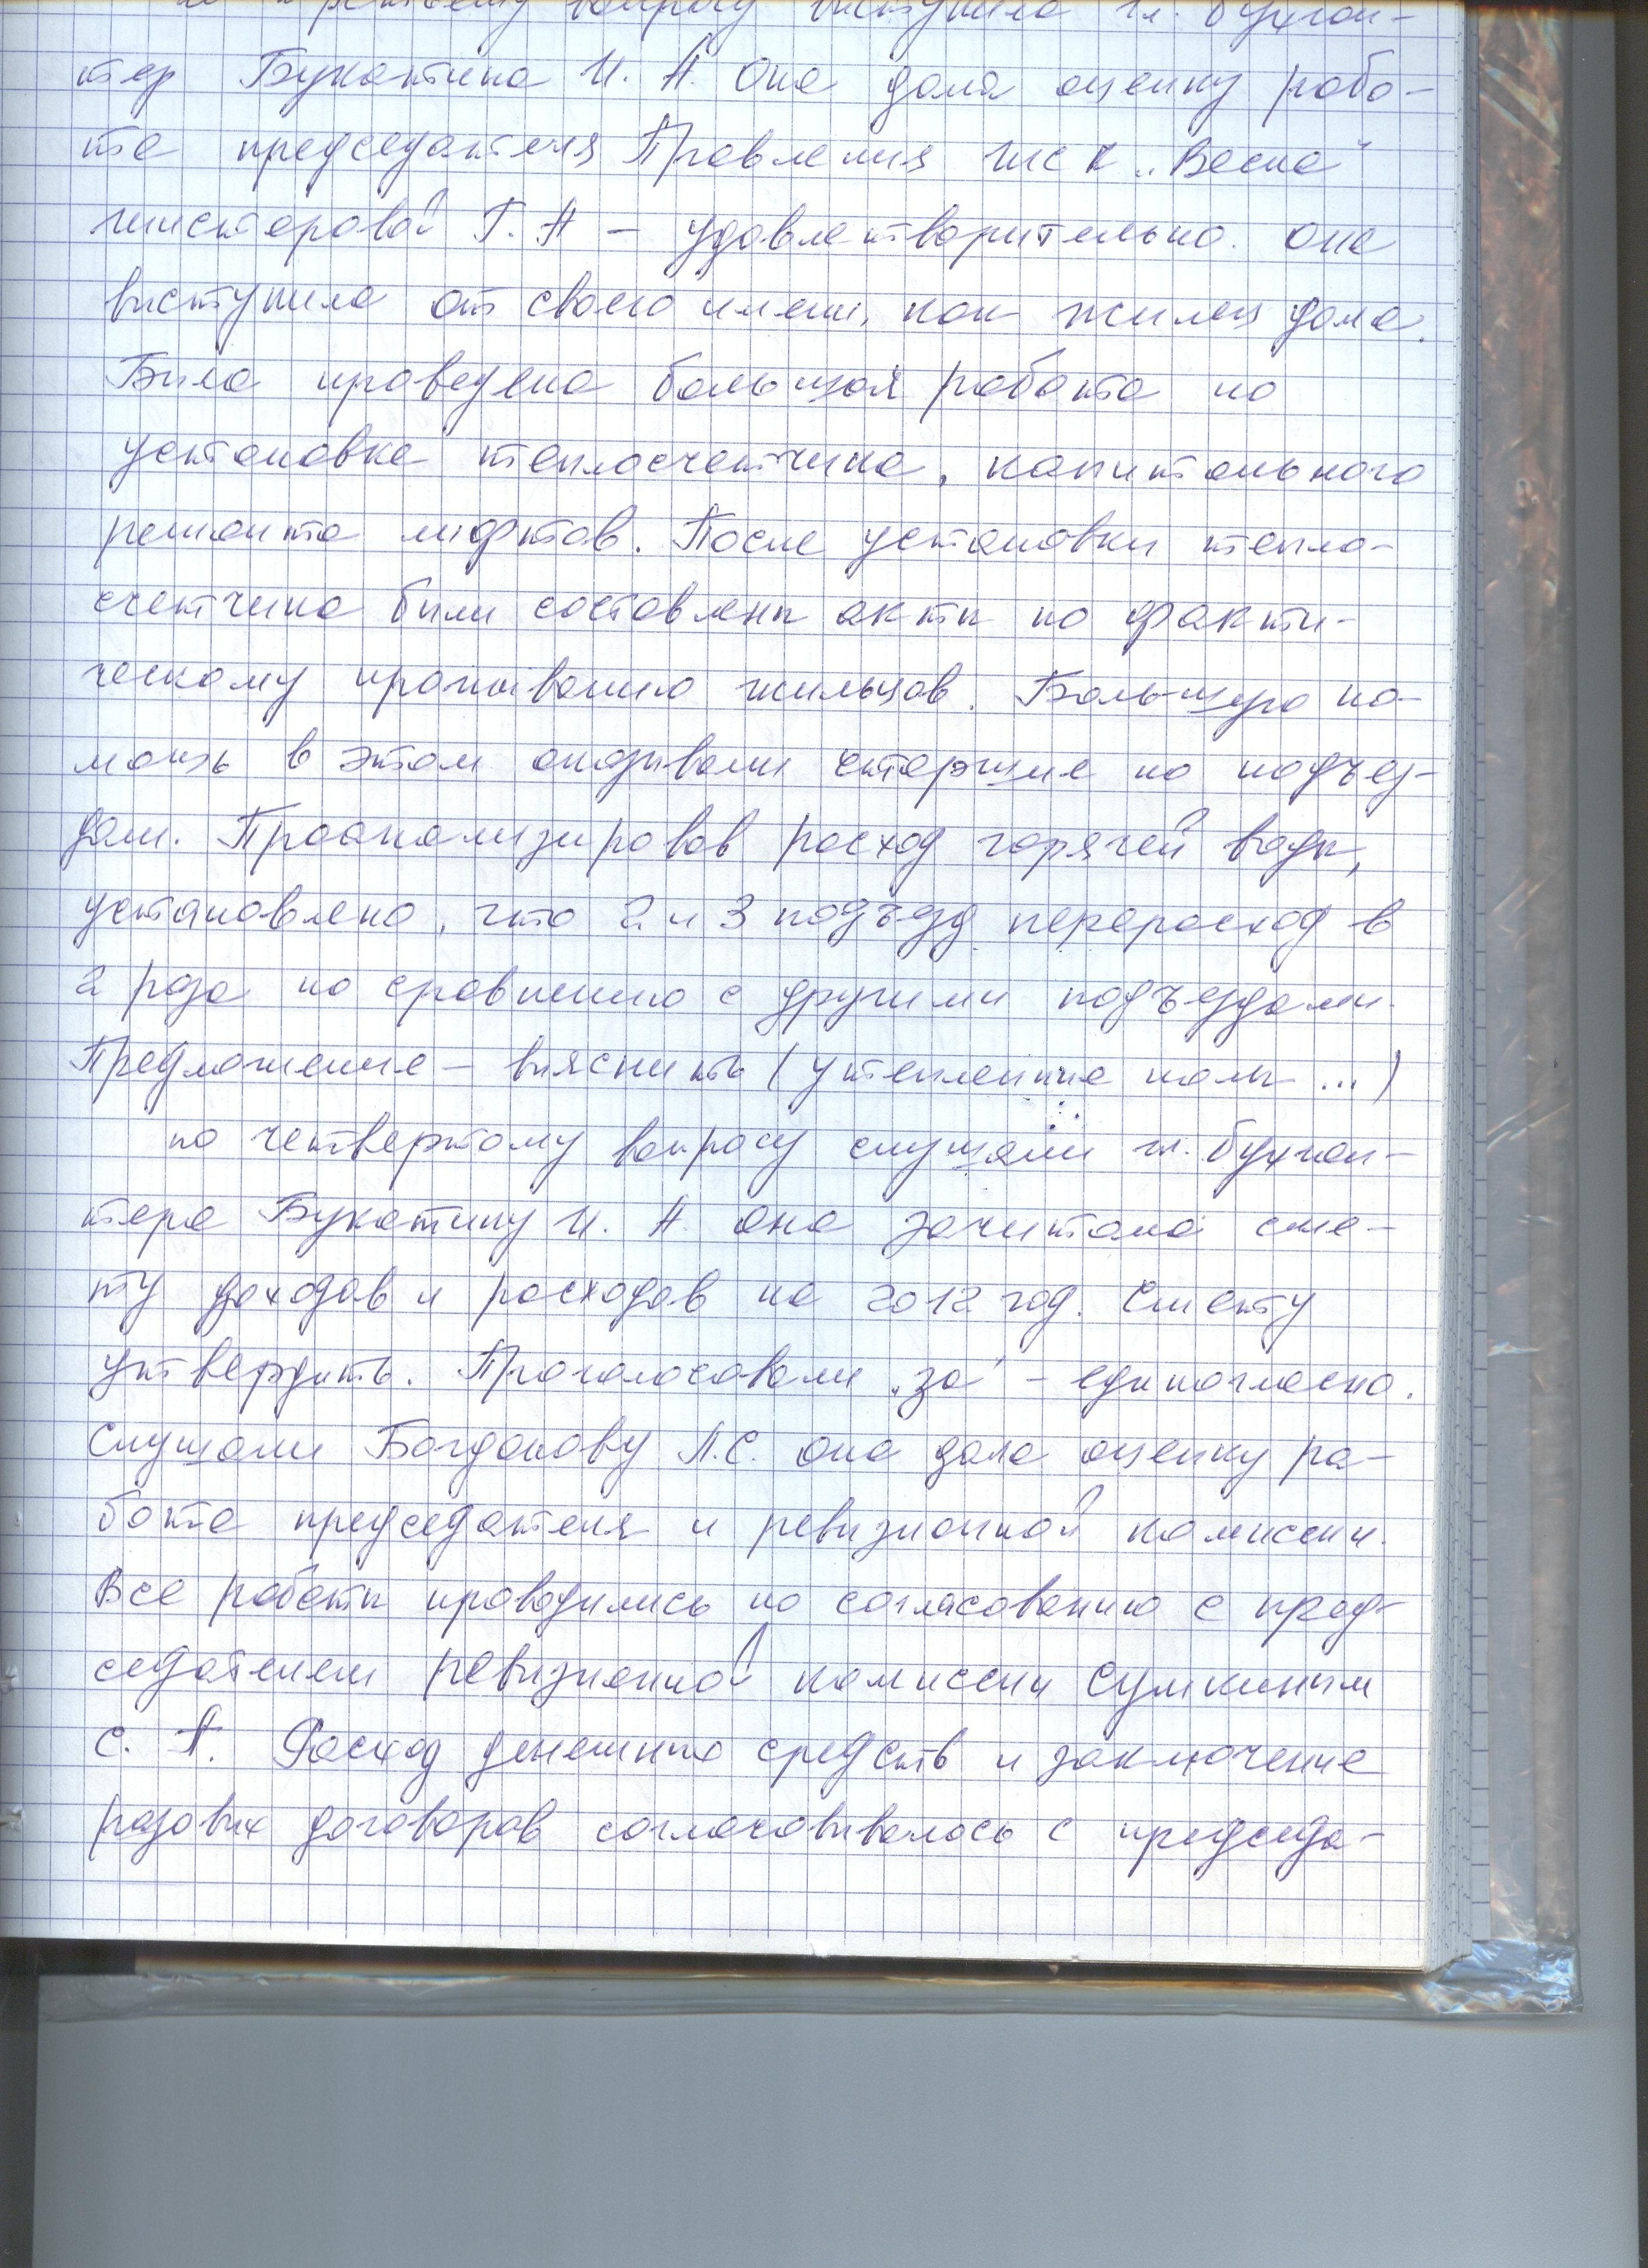 по третьему вопросу выступила гл. бухгал-
тер Букатина И. А. Она дала оценку рабо-
те председателя Правления ЖСК „Весна"
Г. А - удовлетворительно. Она
выступила от своего имени, как жилец дома.
Была проведена большая работа по
установке теплосчетчика, капитального
ремонта лифтов. После установки тепло-
счетчика были составлены акты по факти-
ческому проживанию жильцов. Большую по-
мощь в этом оказывали старшие по подъез-
дам. Проанализировав расход горячей воды,
установлено, что 2 и 3 подъезд перерасход в
2 раза по сравнению с другими подъездами.
Предложение - выяснить (утепленные полы ...)
по четвертому вопросу слушали гл. бухгал-
тера Букатину И. А. она зачитала сме-
ту доходов и расходов на 2012 год. Смету
утвердить. Проголосовали „за" - единогласно.
Слушали Богданову Л.С. она дала оценку ра-
боте председателя и ревизионной комиссии.
Все работы проводились по согласованию с пред-
седателем ревизионной комиссии Сумкиным
С. А. Расход денежных средств и заключение
разовых договоров согласовывалось с председа-